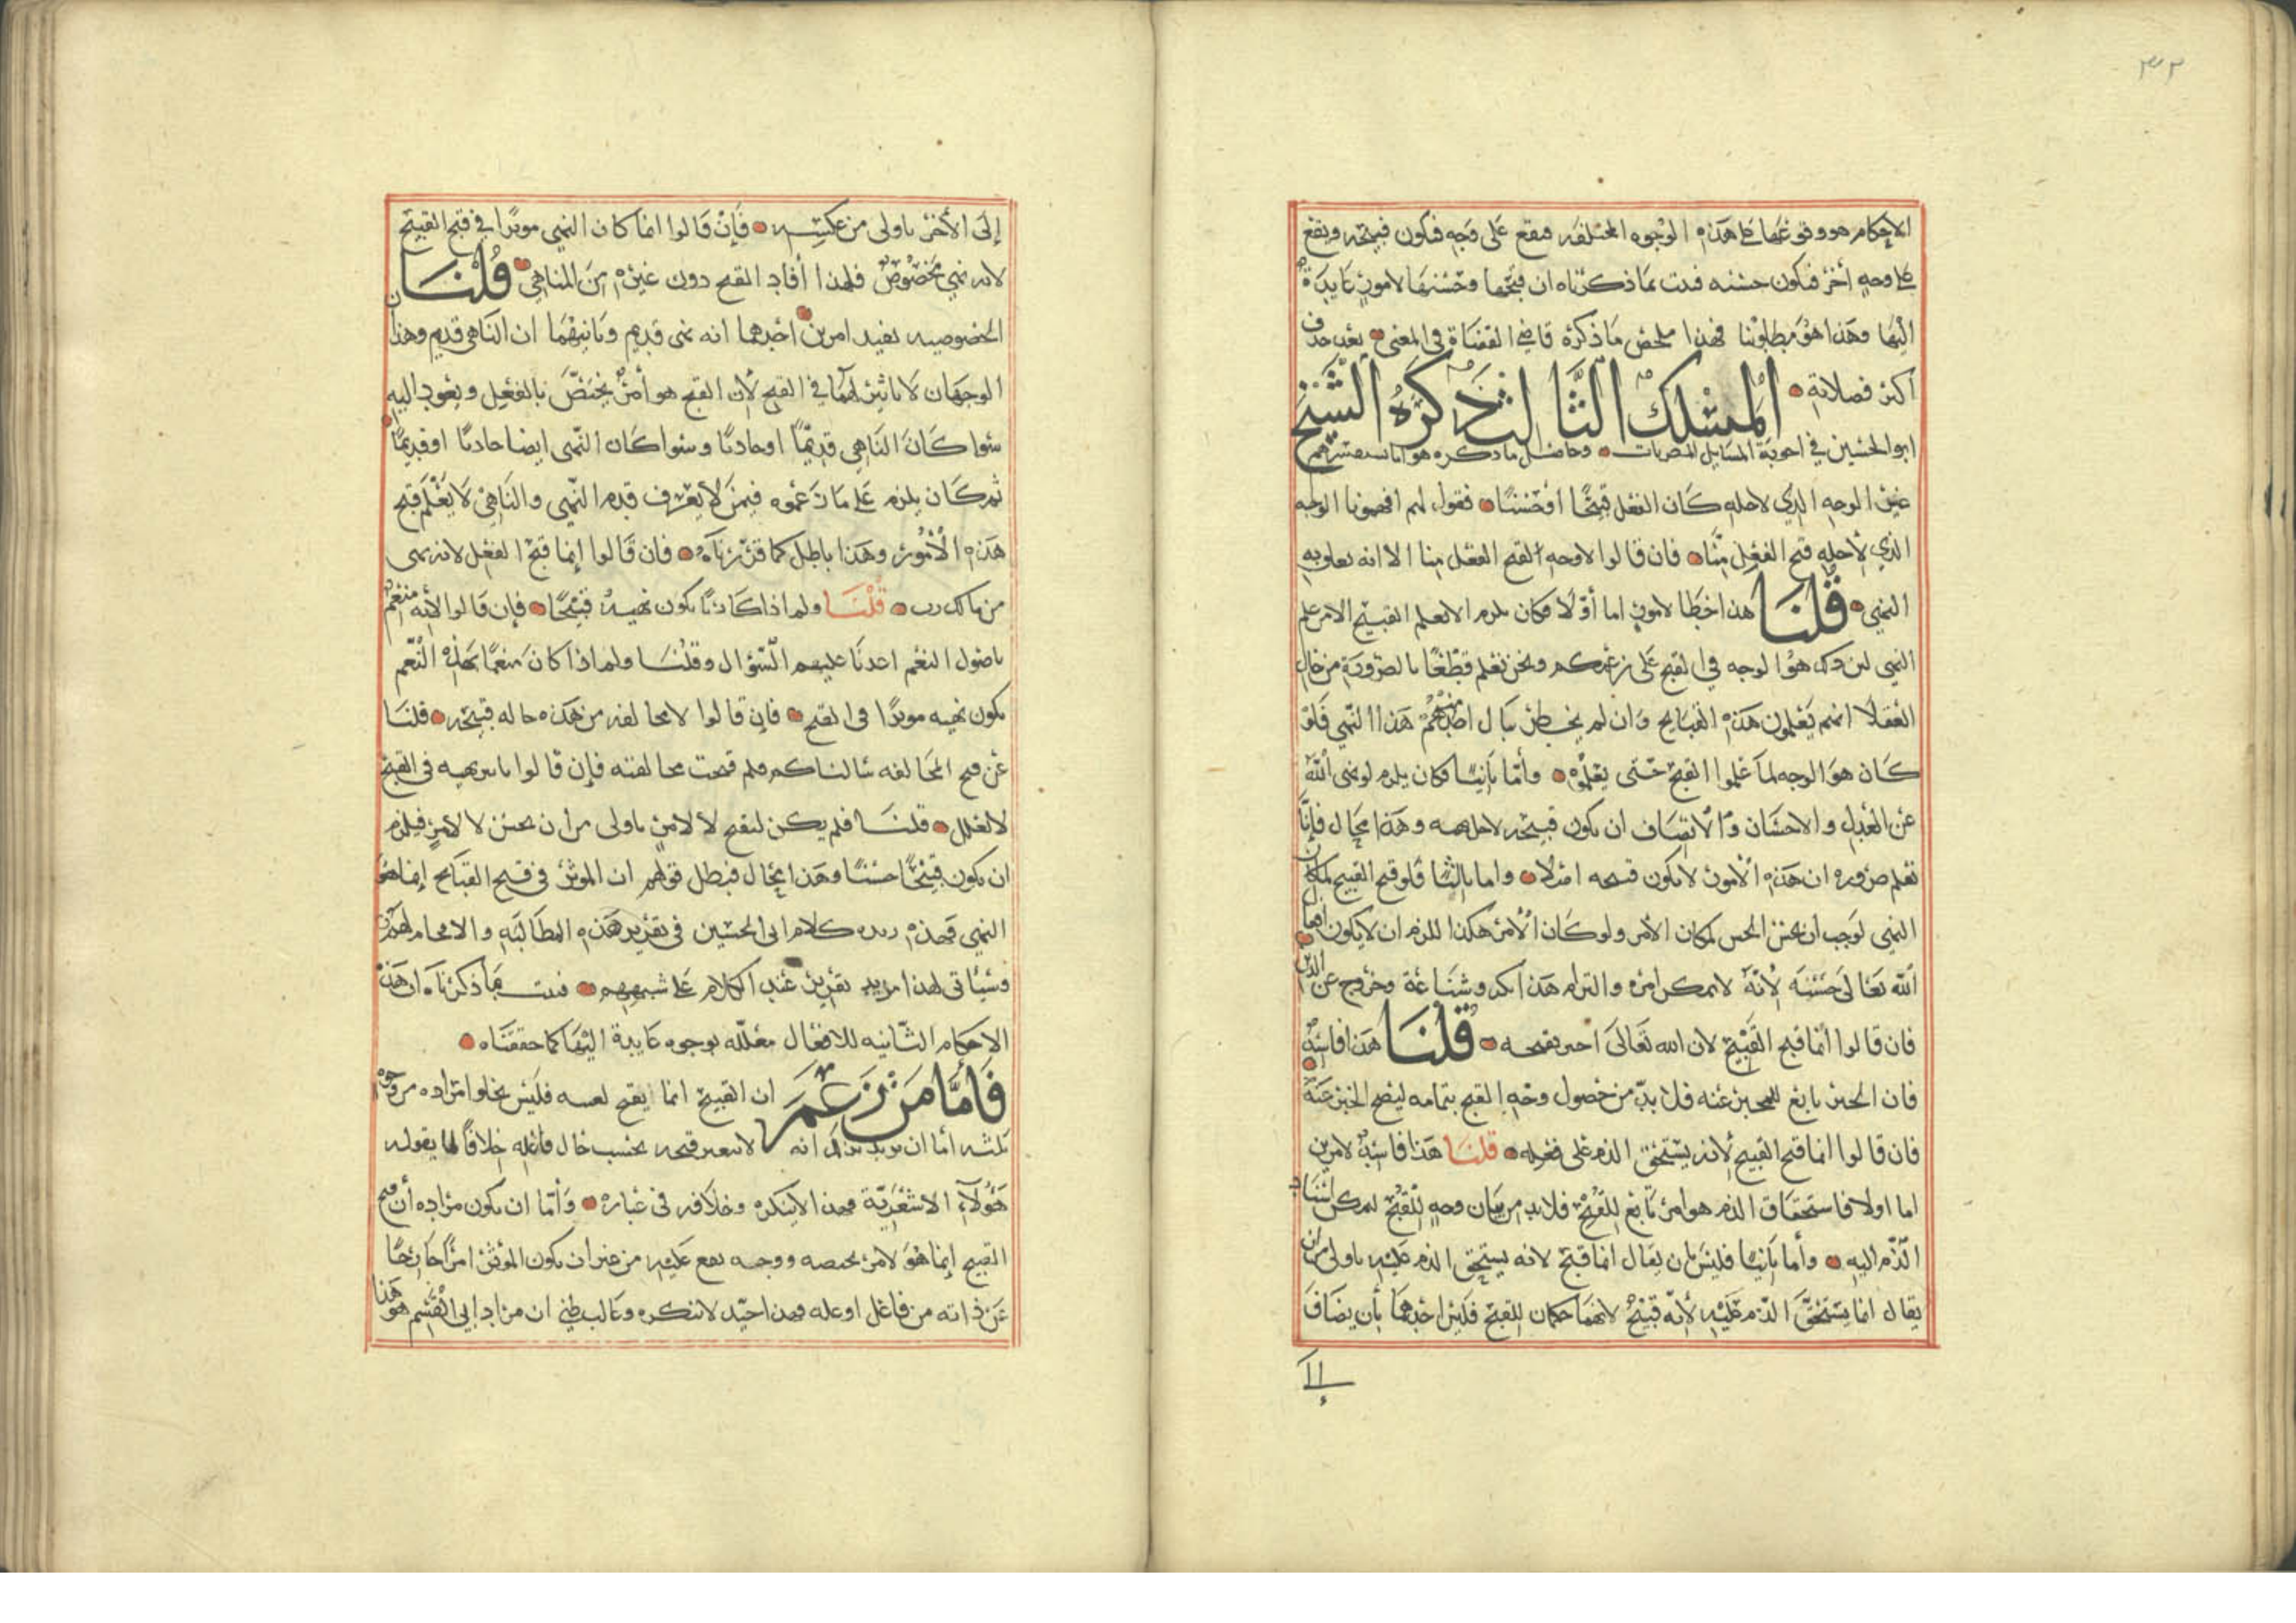 ٣٢
الاحكام هو وقوعها على هذه الوجوه المختلفه فيقع على وجه فيكون قبيحه ويقع
على وجه أخر فيكون حسنه فثبت بما ذكرناه ان قبحها وحسنها لامور عايدة
اليها وهذا هو مطلوبنا فهذا ملخص ما ذكره قاضي القضاة في المعنى بعد حذف
اكثر فصلاته المسلك الثالث ذكره الشيخ
ابو الحسين في اجوبة المسايل المصريات وحاصل ما ذكره هو انا
عن الوجه الذي لاجله كان الفعل قبيحًا أو حسنًا فنقول لهم افهمونا الوجه
الذي لأجله قبح الفعل منّا فان قالوا لا وجه لقبح الفعل منا الا انه تعلق به
النهي قلنا هذا خطا لامور اما أوّلا فكان يلزم الا يعلم القبيح الا من علم
النهي لان ذلك هو الوجه في القبح على زعمكم ونحن نعلم قطعًا بالضرورة من حال
العقلا انهم يعلمون هذه القبايح وان لم يخطر ببال احدهم هذا النهي فلو
كان هو الوجه لما علموا القبح حتى يعلموه وأما ثانيا فكان يلزم لو نهى الله
عن العدل والاحسان والانصاف ان يكون قبيحه لاجل نهيه وهذا محال فإنا
نعلم ضروره ان هذه الامور لا يكون قبيحه اصلا واما ثالثا فلو قبح القبيح لمكان
النهي لوجب أن يحسن الحسن لمكان الامر ولو كان الأمر هكذا للزم ان لا يكون افعال
الله تعالى حسنه لأنه لا يمكن امره والتزام هذا نكر وشناعة وخروج عن الدين
فان قالوا أنما قبح القبيح لان الله تعالى اخبر بقبحه قلنا هذا فاسد
فان الخبر تابع للمخبر عنه فلا بد من حصول وجه القبح بتمامه ليصح الخبر عنه
فان قالوا انما قبح القبيح لأنه يستحق الذم على فعله قلنا هذا فاسد لامرين
اما اولا فاستحقاق الذم هو امر تابع للقبح فلا بد من بيان وجه للقبح ليمكن اسناد
الذم اليه وأما ثانيا فليس بان يقال انما قبح لانه يستحق الذم عليه باولى من ان
يقال انما يستحق الذم عليه لأنه قبيح لانهما حكمان للقبح فليس احدهما بأن يضاف
إلى
إلى الأخر باولى من عكسه فإن قالوا انما كان النهي موثرا في قبح القبيح
لانه نهي مخصوص فلهذا أفاد القبح دون غيره من المناهي قلنا ان
الخصوصيه تفيد امرين احدهما انه نهى قديم وثانيهما ان الناهي قديم وهذان
الوجهان لا تاثير لهما في القبح لأن القبح هو أمر يختص بالفعل ويعود اليه
سوا كان الناهي قديمًا او حادثًا وسوا كان النهي ايضا حادثا او قديمًا
ثم كان يلزم على ما زعموه فيمن لا يعرف قدم النهي والناهي لا يعلم قبح
هذه الأمور وهذا باطل كما قررناه فان قالوا إنما قبح الفعل لانه نهى
من مالك رب قلنا ولم اذا كان ربًا يكون نهيه قبيحًا فإن قالوا لأنه منعم
باصول النعم اعدنا عليهم السؤال وقلنا ولم اذا كان منعمًا بهذه النعم
يكون نهيه موثرًا في القبح فإن قالوا لان مخالفه من هذه حاله قبيحه قلنا
عن قبح المخالفه سالناكم فلم قبحت مخالفته فإن قالوا تاثير نهيه في القبح
لا لعلل قلنا فلم يكن ليقبح لا لامر باولى من ان يحسن لا لامر فيلزم
ان يكون قبيحًا حسنًا وهذا محال فبطل قولهم ان الموثر في قبح القبايح إنما هو
النهي فهذه زبده كلام ابي الحسين في تقرير هذه المطالبه والافحام لهم
وسيأتي لهذا مزيد تقرير عند الكلام على شبههم فثبت بما ذكرناه ان هذه
الاحكام الثانيه للافعال معلله بوجوه عايدة اليها كما حققناه
فأما من زعم ان القبيح انما يقبح لعينه فليس يخلو امراده من وجوه
ثلثه أما ان يريد بذلك انه لا يتغير قبحه بحسب حال فاعله خلافًا لما يقوله
هؤلاء الاشعرية فهذا لا ينكره وخلافه في عباره وأما ان يكون مراده أن قبح
القبيح إنما هو لامر يخصه ووجه يقع عليه من غير ان يكون الموثر امرًا خارجًا
عن ذاته من فاعل او عله فهذا جيد لا ننكره وغالب ظني ان مراد ابي القسم هو هذا